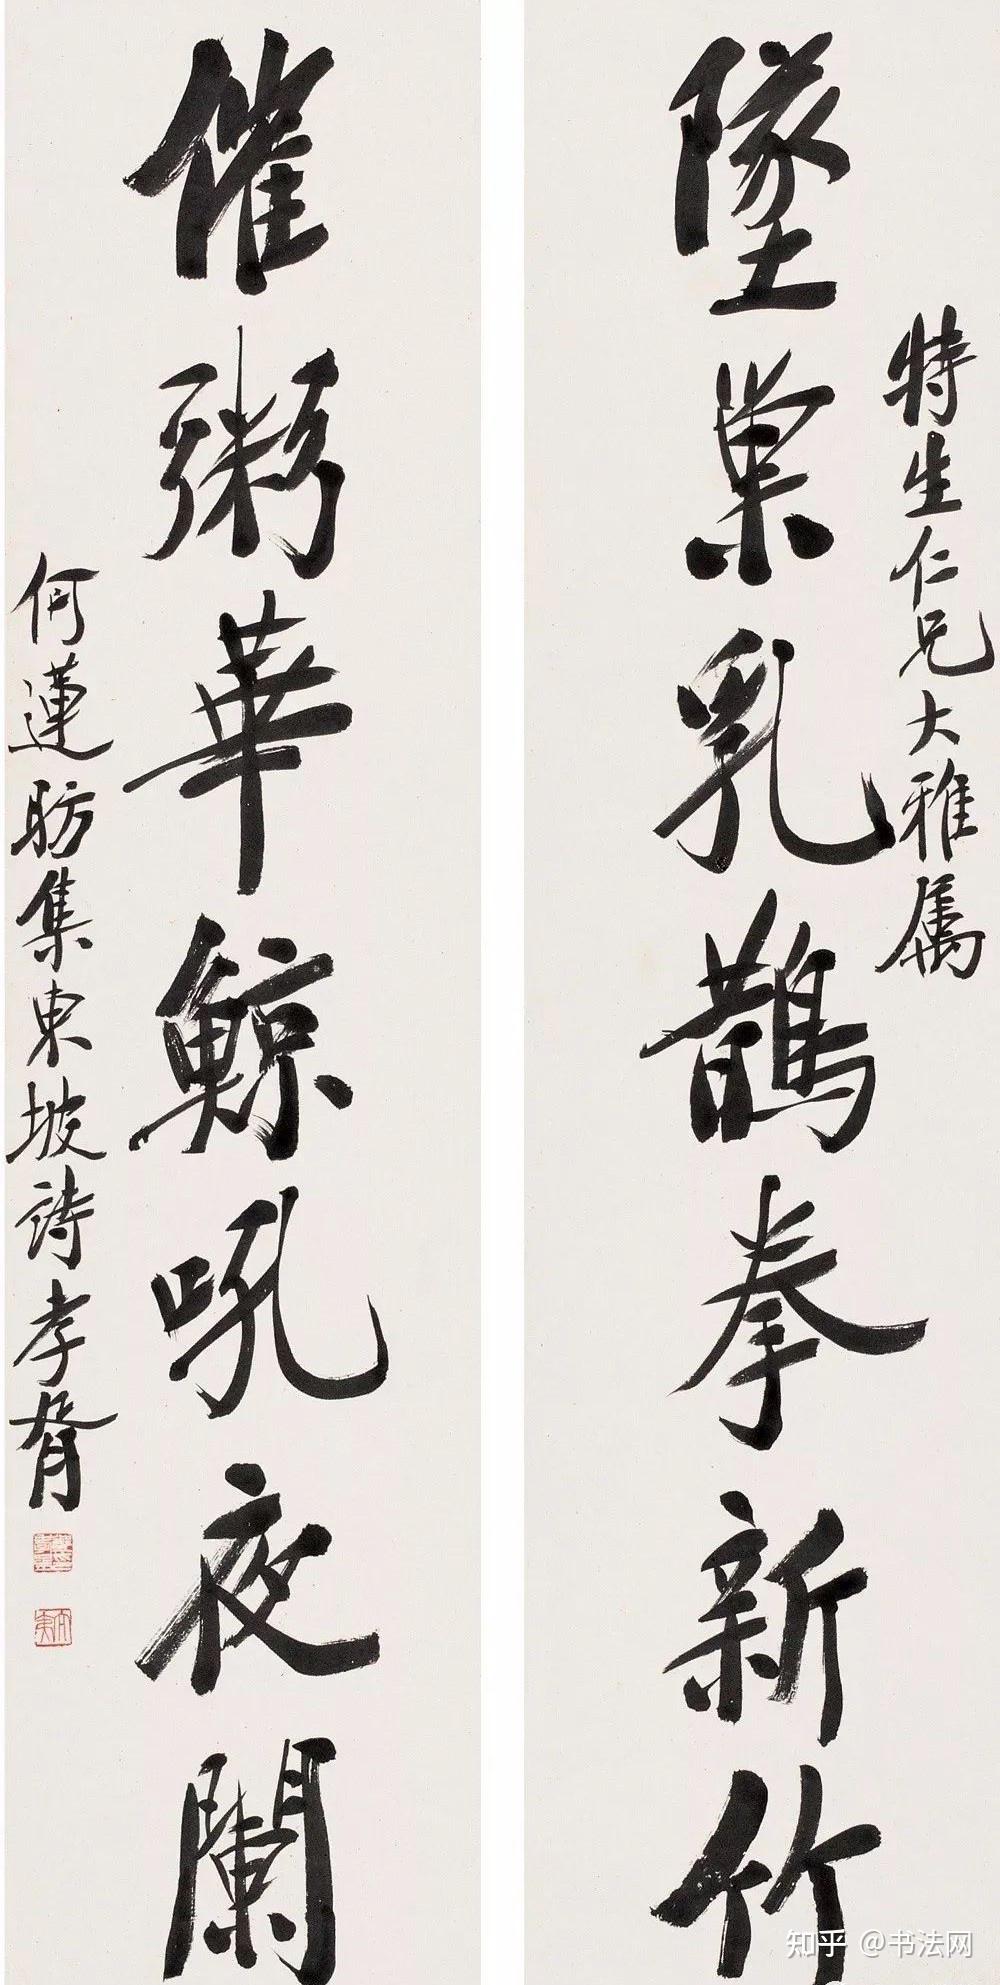 特生仁兄大雅属
墜巢乳鵲拳新竹
催粥華鯨吼夜闌
何蓮舫集東坡詩孝胥
知乎 @书法网